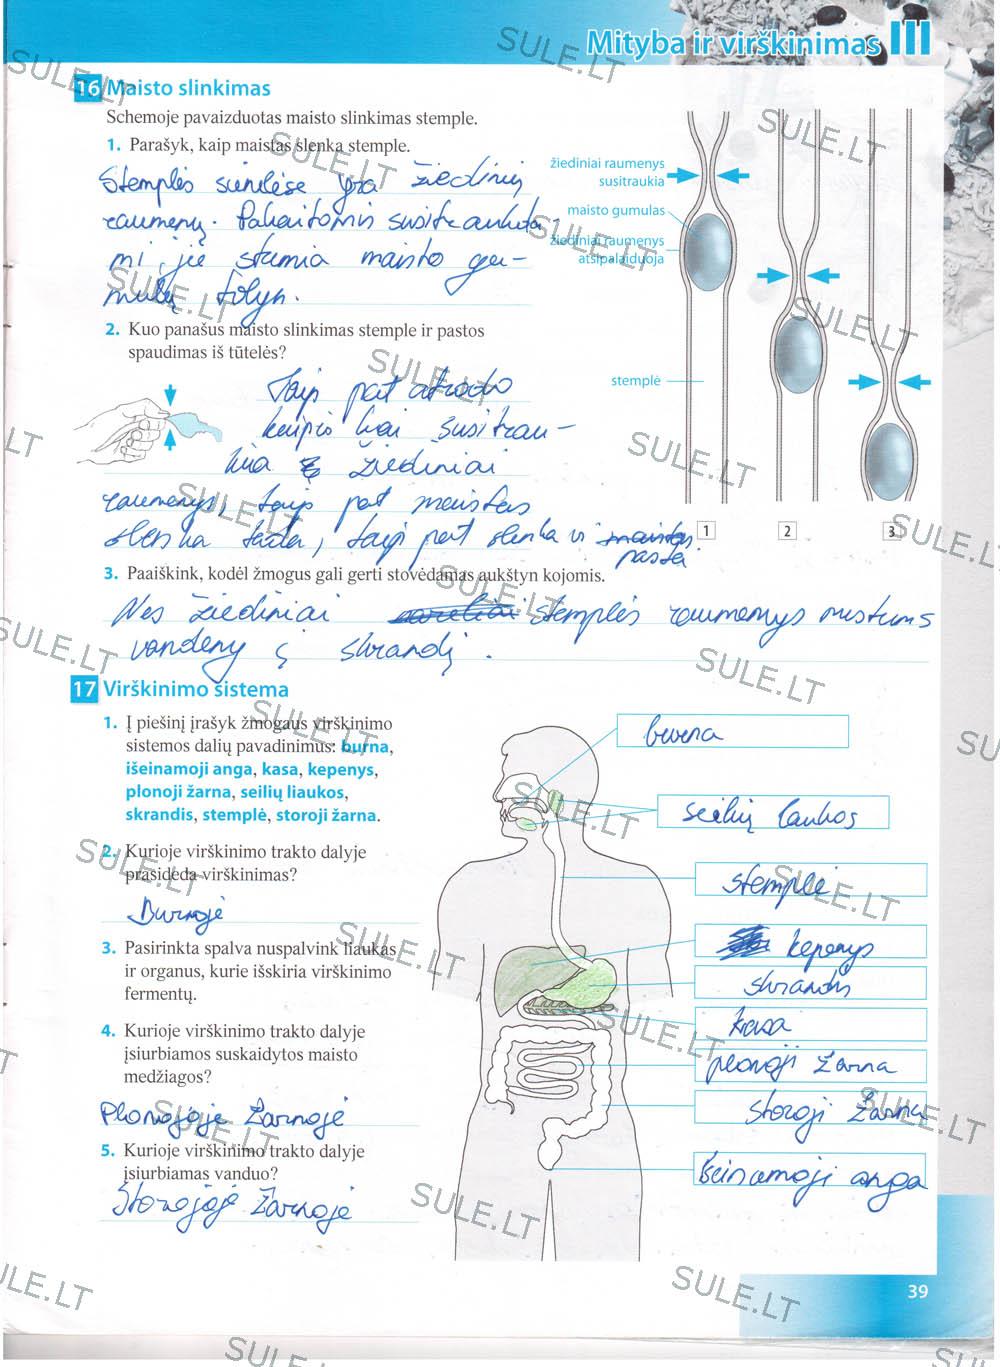 Mityba ir virškinimas III
16 Maisto slinkimas
Schemoje pavaizduotas maisto slinkimas stemple.
1. Parašyk, kaip maistas slenka stemple.
Stemplės sienelėse yra žiedinių
raumenų. Pakaitomis susitraukda-
mi, jie stumia maisto gu-
mulą tolyn.
žiediniai raumenys
susitraukia
maisto gumulas
žiediniai raumenys
atsipalaiduoja
stemplė
1
2
3
2. Kuo panašus maisto slinkimas stemple ir pastos
spaudimas iš tūtelės?
Taip pat atrodo
kaip kai susitrau-
kia žiediniai
raumenys, taip pat maistas
slenka tada, taip pat slenka ir maistas
pasta.
3. Paaiškink, kodėl žmogus gali gerti stovėdamas aukštyn kojomis.
Nes žiediniai stemplės raumenys nustums
vandenį į skrandį.
17 Virškinimo sistema
1. Į piešinį įrašyk žmogaus virškinimo
sistemos dalių pavadinimus: burna,
išeinamoji anga, kasa, kepenys,
plonoji žarna, seilių liaukos,
skrandis, stemplė, storoji žarna.
2. Kurioje virškinimo trakto dalyje
prasideda virškinimas?
Burnoje
3. Pasirinkta spalva nuspalvink liaukas
ir organus, kurie išskiria virškinimo
fermentų.
4. Kurioje virškinimo trakto dalyje
įsiurbiamos suskaidytos maisto
medžiagos?
Plonojoje žarnoje
5. Kurioje virškinimo trakto dalyje
įsiurbiamas vanduo?
Storojoje žarnoje
burna
seilių laukos
stemplė
kepenys
skrandis
kasa
plonoji žarna
storoji žarna
Išeinamoji anga
39
SULE.LT